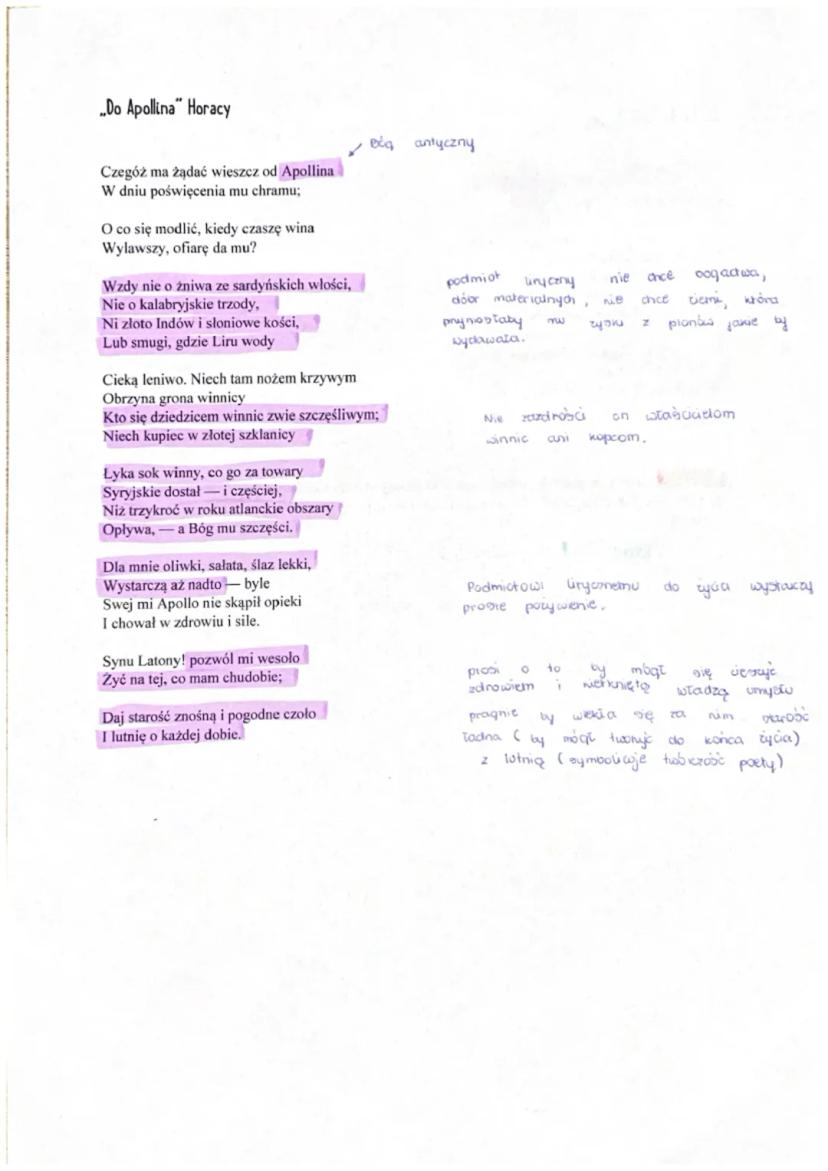 „Do Apollina" Horacy
Bóg antyczny
Czegóż ma żądać wieszcz od Apollina
W dniu poświęcenia mu chramu;
O co się modlić, kiedy czaszę wina
Wylawszy, ofiarę da mu?
Wzdy nie o żniwa ze sardyńskich włości,
Nie o kalabryjskie trzody,
Ni złoto Indów i słoniowe kości,
Lub smugi, gdzie Liru wody
podmiot liryczny nie chce bogactwa,
dóbr materialnych, nie chce ziemi, która
przynosiłaby mu zysku z plonów jakie by
wydawała.
Cieką leniwo. Niech tam nożem krzywym
Obrzyna grona winnicy
Kto się dziedzicem winnic zwie szczęśliwym;
Niech kupiec w złotej szklanicy
Nie zazdrości on właścicielom
winnic ani kupcom.
Łyka sok winny, co go za towary
Syryjskie dostał — i częściej,
Niż trzykroć w roku atlanckie obszary
Opływa, — a Bóg mu szczęści.
Dla mnie oliwki, sałata, ślaz lekki,
Wystarczą aż nadto — byle
Swej mi Apollo nie skąpił opieki
I chował w zdrowiu i sile.
Podmiotowi lirycznemu do życia wystarczy
proste pożywienie.
Synu Latony! pozwól mi wesoło
Żyć na tej, co mam chudobie;
Daj starość znośną i pogodne czoło
I lutnię o każdej dobie.
prosi o to by mógł się cieszyć
zdrowiem i nietkniętą władzą umysłu
pragnie by wlekła się za nim starość
ładna (by mógł tworzyć do końca życia)
z lutnią (symbolizuje twórczość poety)